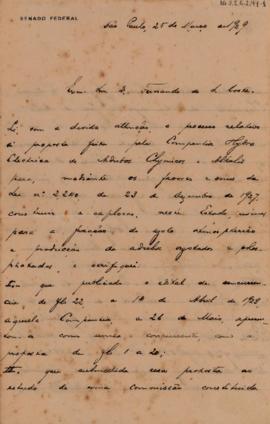 SENADO FEDERAL
São Paulo, 25 de Março de 1929
Exmo. Snr. D. Fernando de S. Costa.
Li, com a devida attenção, o processo relativo
á proposta feita pela Companhia Hydro
Electrica de Adubos Chymicos e Metaes
para, mediante os favores e onus da
Lei nº 2,240 de 23 de dezembro de 1927,
construir e explorar, neste Estado, usinas
para a fixação do azoto atmospherico
e producção de adubos azotados e phos-
phatados, e verifiquei
que publicado o edital de concurren-
cia, de fls 22, a 10 de Abril de 1928,
aquella Companhia a 26 de Maio, apresen-
tou como unica concurrente, com a
proposta de fls 1 a 20;
que submettida essa proposta ao
estudo de uma commissão constituida